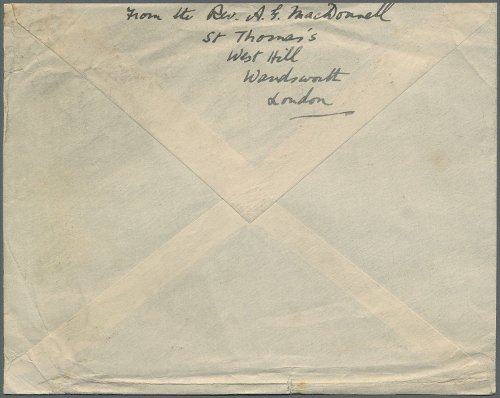 From the Rev. A. G. MacDonnell
St Thomas's
West Hill
Wandsworth
London